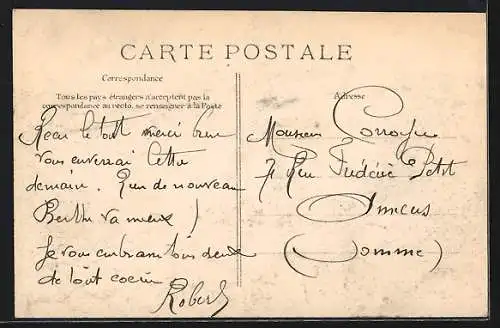 CARTE POSTALE
Correspondance
Tous les pays étrangers n'acceptent pas la
correspondance au recto, se renseigner à la Poste
Adresse
Reçu le tout merci bien
vous enverrai lettre
demain. Rien de nouveau
Berthe va mieux !
Je vous embrasse tous deux
de tout coeur
Robert
Monsieur
7 Rue Frédéric Petit
Amiens
(Somme)